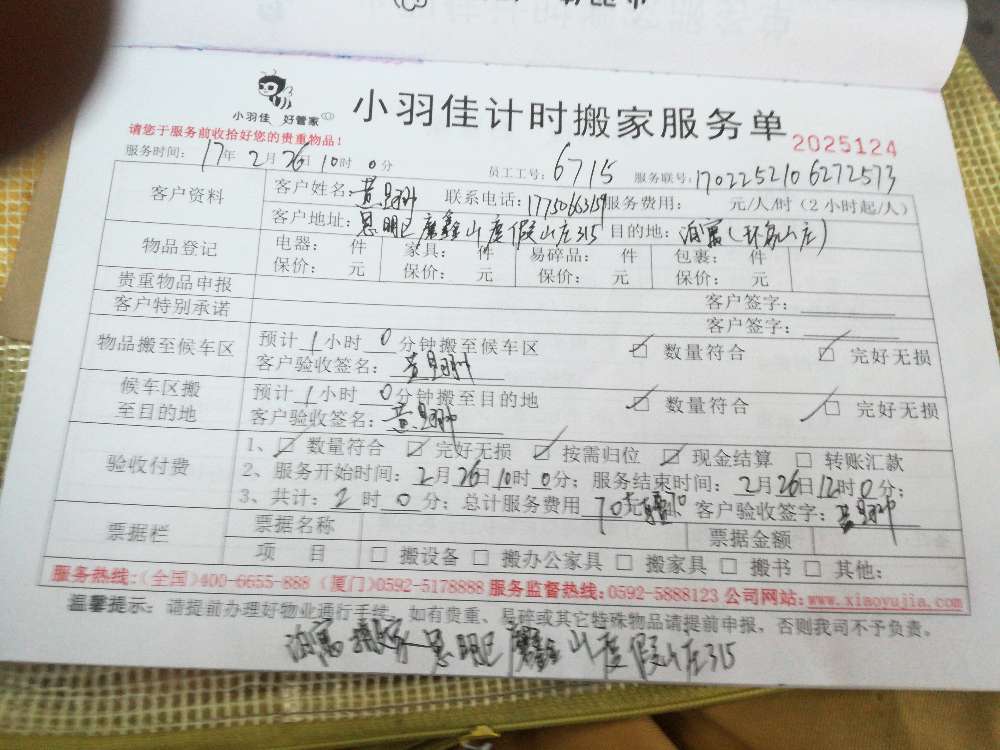 小羽佳 好管家
小羽佳计时搬家服务单
2025124
请您于服务前收拾好您的贵重物品!
服务时间: 17年 2月 26日 10时 0分 员工工号: 6715 服务联号: 1702252106272573
客户资料 客户姓名: 黄 联系电话: 服务费用: 元/人/时(2小时起/人)
客户地址: 思明区 鑫山度假山庄315 目的地: 泊寓(山庄)
物品登记 电器: 件 家具: 件 易碎品: 件 包裹: 件
保价: 元 保价: 元 保价: 元 保价: 元
贵重物品申报 客户签字:
客户特别承诺 客户签字:
物品搬至候车区 预计 1 小时 0 分钟搬至候车区 数量符合 完好无损
客户验收签名: 黄
候车区搬至目的地 预计 1 小时 0 分钟搬至目的地 数量符合 完好无损
客户验收签名: 黄
验收付费 1、 数量符合 完好无损 按需归位 现金结算 转账汇款
2、服务开始时间: 2月26日10时0分; 服务结束时间: 2月26日12时0分;
3、共计: 2 时 0 分; 总计服务费用 70元 客户验收签字: 黄
票据栏 票据名称 票据金额
项 目 搬设备 搬办公家具 搬家具 搬书 其他:
服务热线:(全国)400-6655-888 (厦门)0592-5178888 服务监督热线:0592-5888123 公司网站:www.xiaoyujia.com
温馨提示: 请提前办理好物业通行手续, 如有贵重、易碎或其它特殊物品请提前申报, 否则我司不予负责。
泊寓 思明区 鑫山度假山庄315